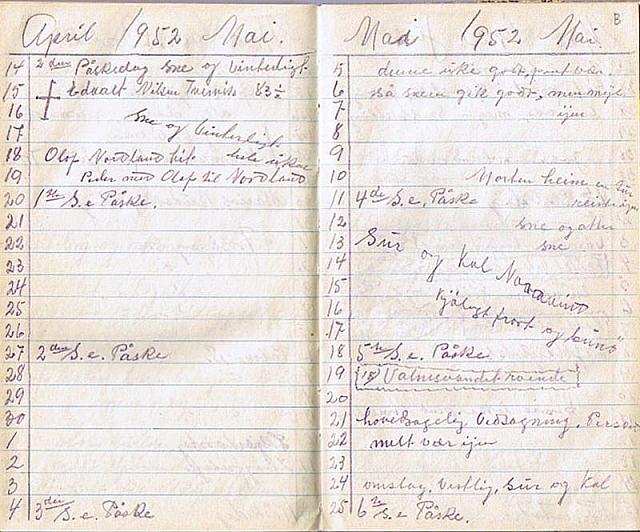 April 1952 Mai.
14 2den Påskedag Sne og Vinterligt
15 Edvalt Nilsen 83 ½
16
Sne og Vinterligt
17
18 Olof Nordland hit hele
19 Peder med Olof til Nordland
20 1ste S. e. Påske.
21
22
23
24
25
26
27 2den S. e. Påske
28
29
30
1
2
3
4 3die S. e. Påske
B
Mai 1952 Mai.
5 denne uke godt, vær.
6 så sneen gik godt, men
7 ijen
8
9
10 Morten heim en tur
11 4de S. e. Påske
12 Sne og atter
13 Sur og Kal sne
14
15
16 Kjøligt frost og
17
18 5te S. e. Påske
19 Valnesvandet
20
21 hovedsagelig Vedsagning.
22 milt vær ijen
23
24 omslag, Vestlig, Sur og Kal
25 6te S. e. Påske.